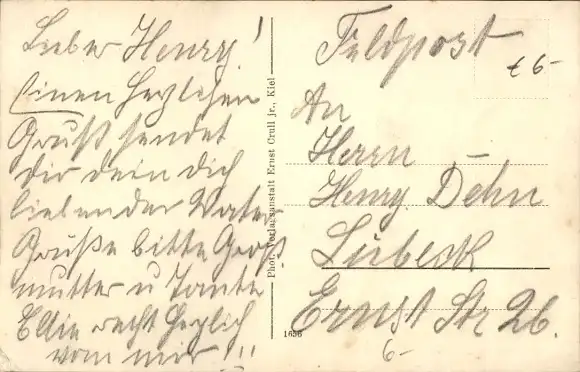 Lieber Henry!
Einen herzlichen
Gruß sendet
dir dein dich
liebender Vater
Grüße bitte Groß
mutter u Tante
Ellie recht herzlich
vom mir!!!
Phot. Verlagsanstalt Ernst Crull jr., Kiel
1656
Feldpost
€ 6-
An
Herrn
Henry Dehn
Lübeck
Ernst Str 26.
6-